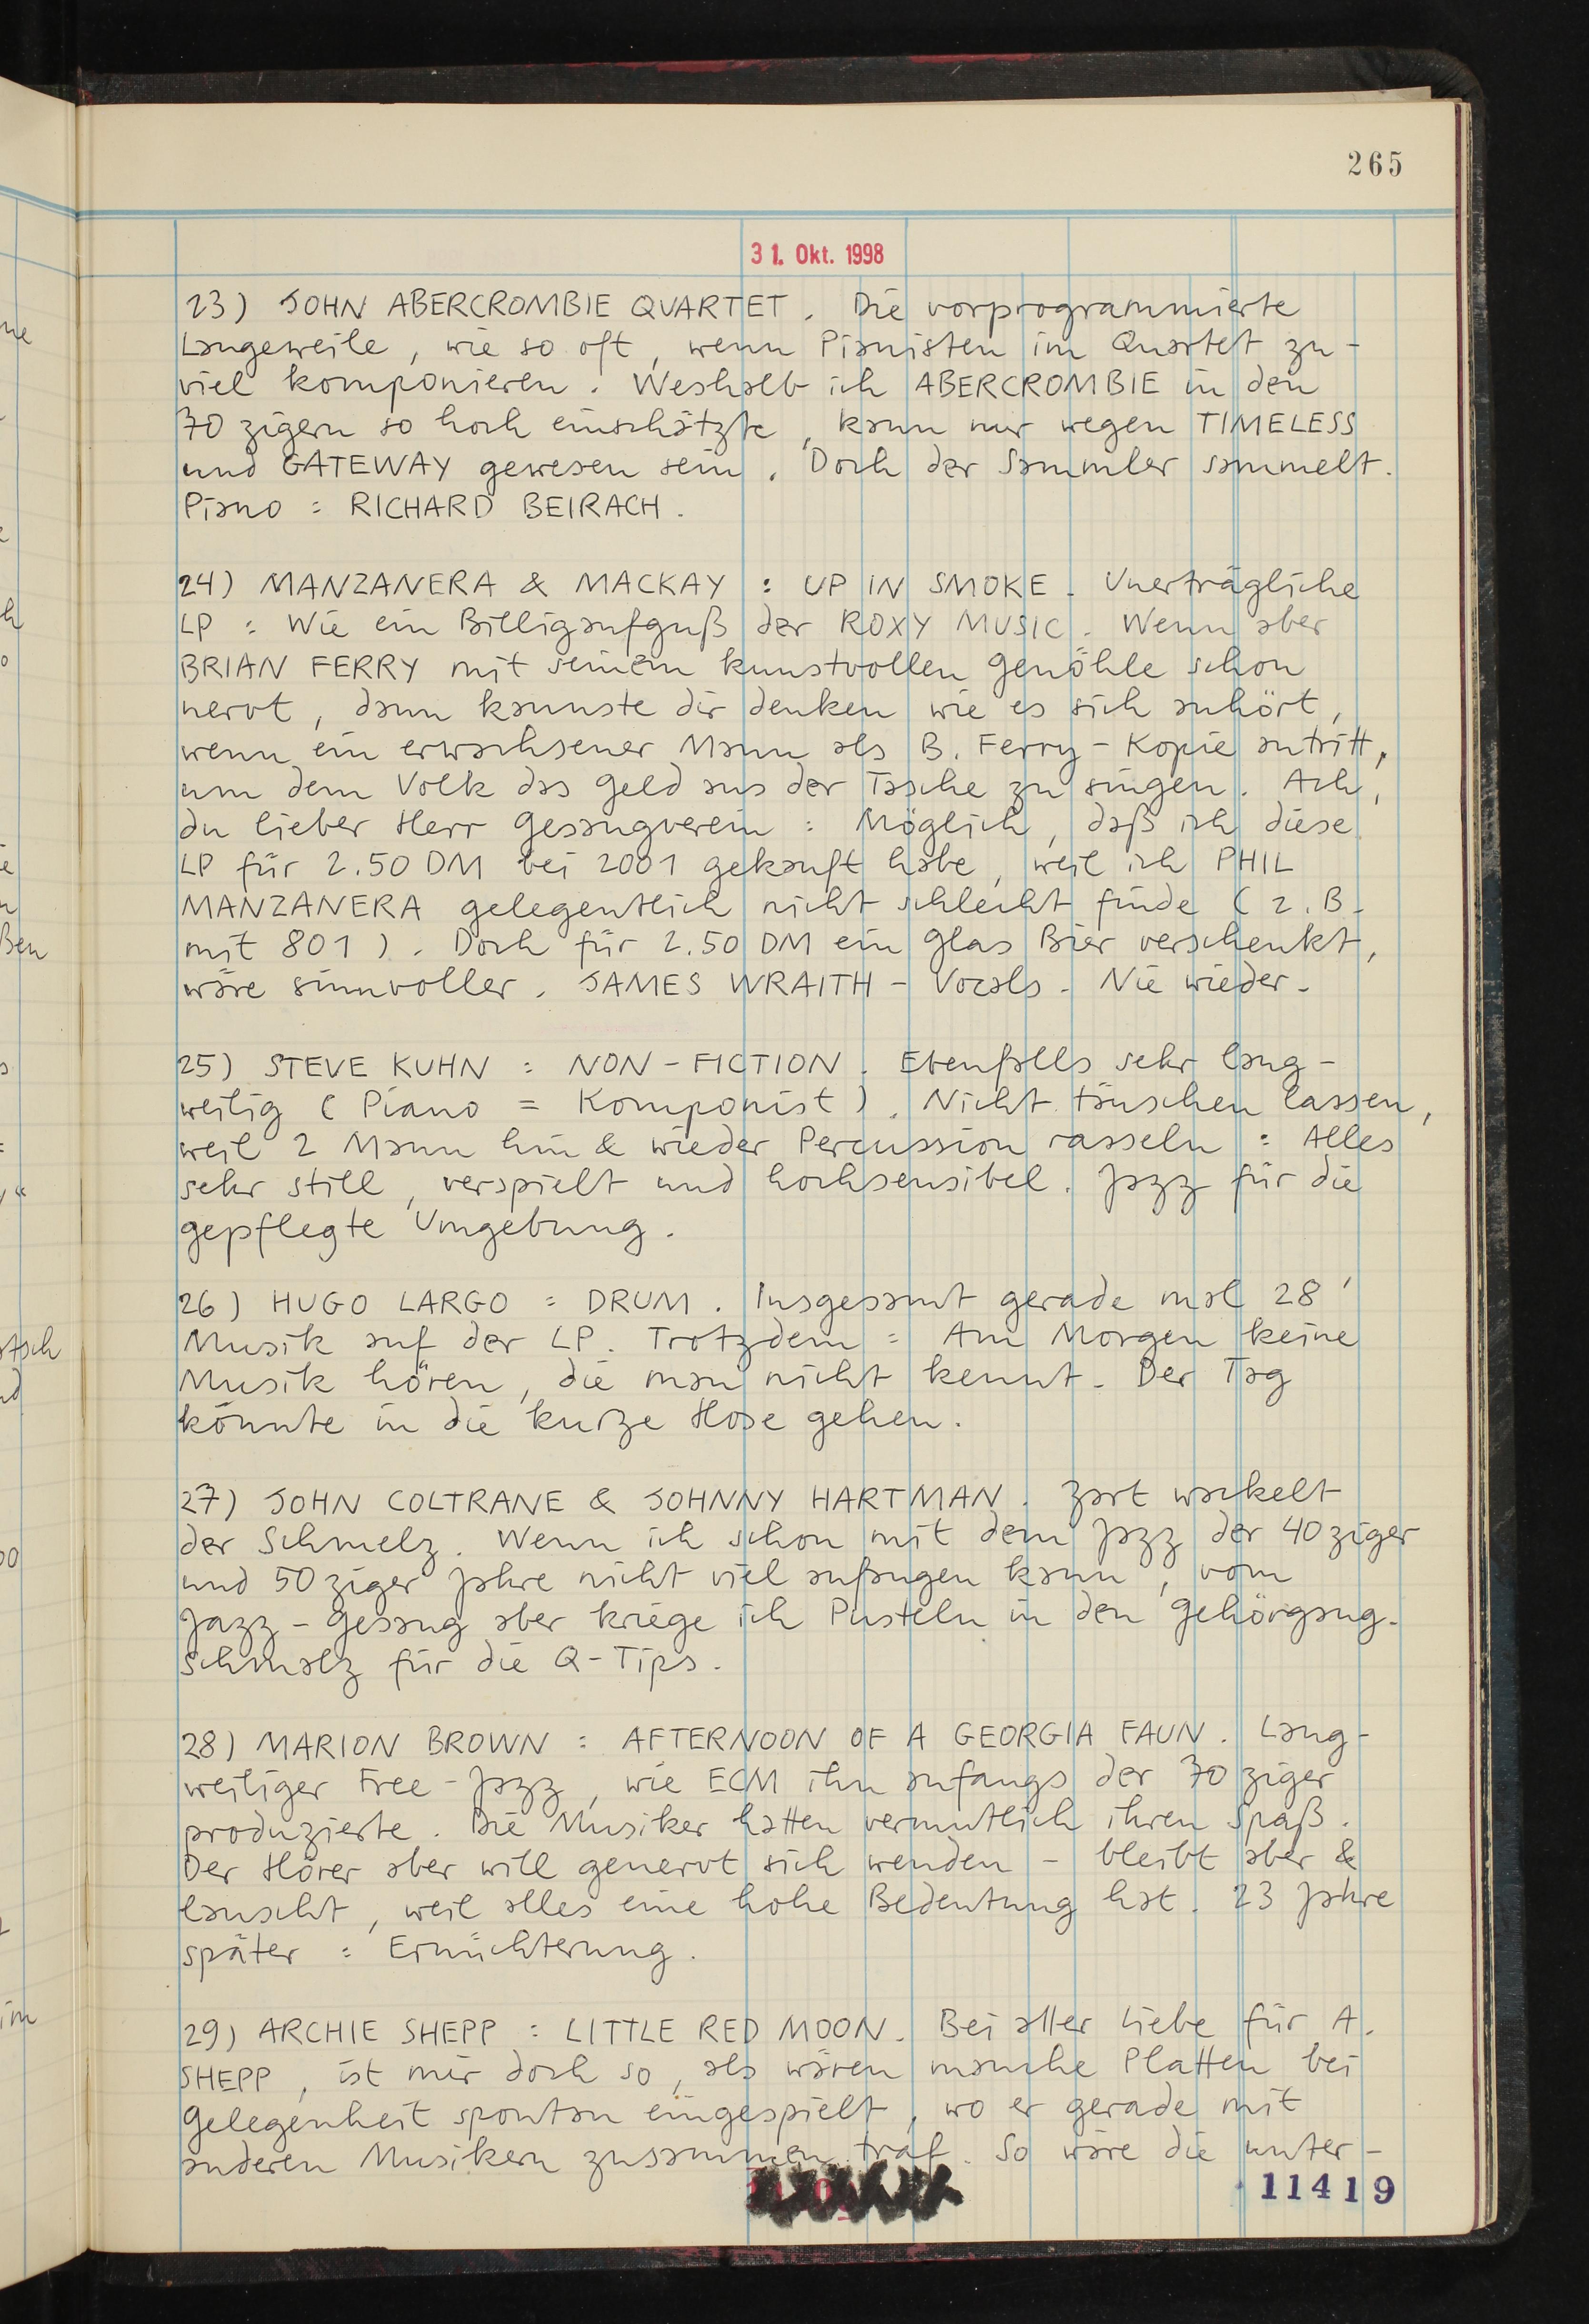 265
31. Okt. 1998
23) JOHN ABERCROMBIE QUARTET. Die vorprogrammierte
Langeweile, wie so oft, wenn Pianisten im Quartet zu-
viel komponieren. Weshalb ich ABERCROMBIE in den
70zigern so hoch einschätzte, kann nur wegen TIMELESS
und GATEWAY gewesen sein. Doch der Sammler sammelt.
Piano : RICHARD BEIRACH.
24) MANZANERA & MACKAY : UP IN SMOKE. Unerträgliche
LP : Wie ein Billigaufguß der ROXY MUSIC. Wenn aber
BRIAN FERRY mit seinem kunstvollen Genöhle schon
nervt, dann kannste dir denken wie es sich anhört,
wenn ein erwachsener Mann als B. Ferry-Kopie antritt,
um dem Volk das Geld aus der Tasche zu singen. Ach,
du lieber Herr Gesangverein : Möglich, daß ich diese
LP für 2.50 DM bei 2001 gekauft habe, weil ich PHIL
MANZANERA gelegentlich nicht schlecht finde (z.B.
mit 801). Doch für 2.50 DM ein Glas Bier verschenkt,
wäre sinnvoller. JAMES WRAITH - Vocals. Nie wieder.
25) STEVE KUHN : NON-FICTION. Ebenfalls sehr lang-
weilig (Piano = Komponist). Nicht täuschen lassen,
weil 2 Mann hin & wieder Percussion rasseln : Alles
sehr still, verspielt und hochsensibel. Jazz für die
gepflegte Umgebung.
26) HUGO LARGO : DRUM. Insgesamt gerade mal 28'
Musik auf der LP. Trotzdem : Am Morgen keine
Musik hören, die man nicht kennt. Der Tag
könnte in die kurze Hose gehen.
27) JOHN COLTRANE & JOHNNY HARTMAN. Zart wackelt
der Schmelz. Wenn ich schon mit dem Jazz der 40ziger
und 50ziger Jahre nicht viel anfangen kann, vom
Jazz-Gesang aber kriege ich Pusteln in den Gehörgang.
Schmalz für die Q-Tips.
28) MARION BROWN : AFTERNOON OF A GEORGIA FAUN. Lang-
weiliger Free-Jazz, wie ECM ihn anfangs der 70ziger
produzierte. Die Musiker hatten vermutlich ihren Spaß.
Der Hörer aber will genervt sich wenden - bleibt aber &
lauscht, weil alles eine hohe Bedeutung hat. 23 Jahre
später : Ernüchterung.
29) ARCHIE SHEPP : LITTLE RED MOON. Bei aller Liebe für A.
SHEPP, ist mir doch so, als wären manche Platten bei
Gelegenheit spontan eingespielt, wo er gerade mit
anderen Musikern zusammen traf. So wäre die unter-
11419